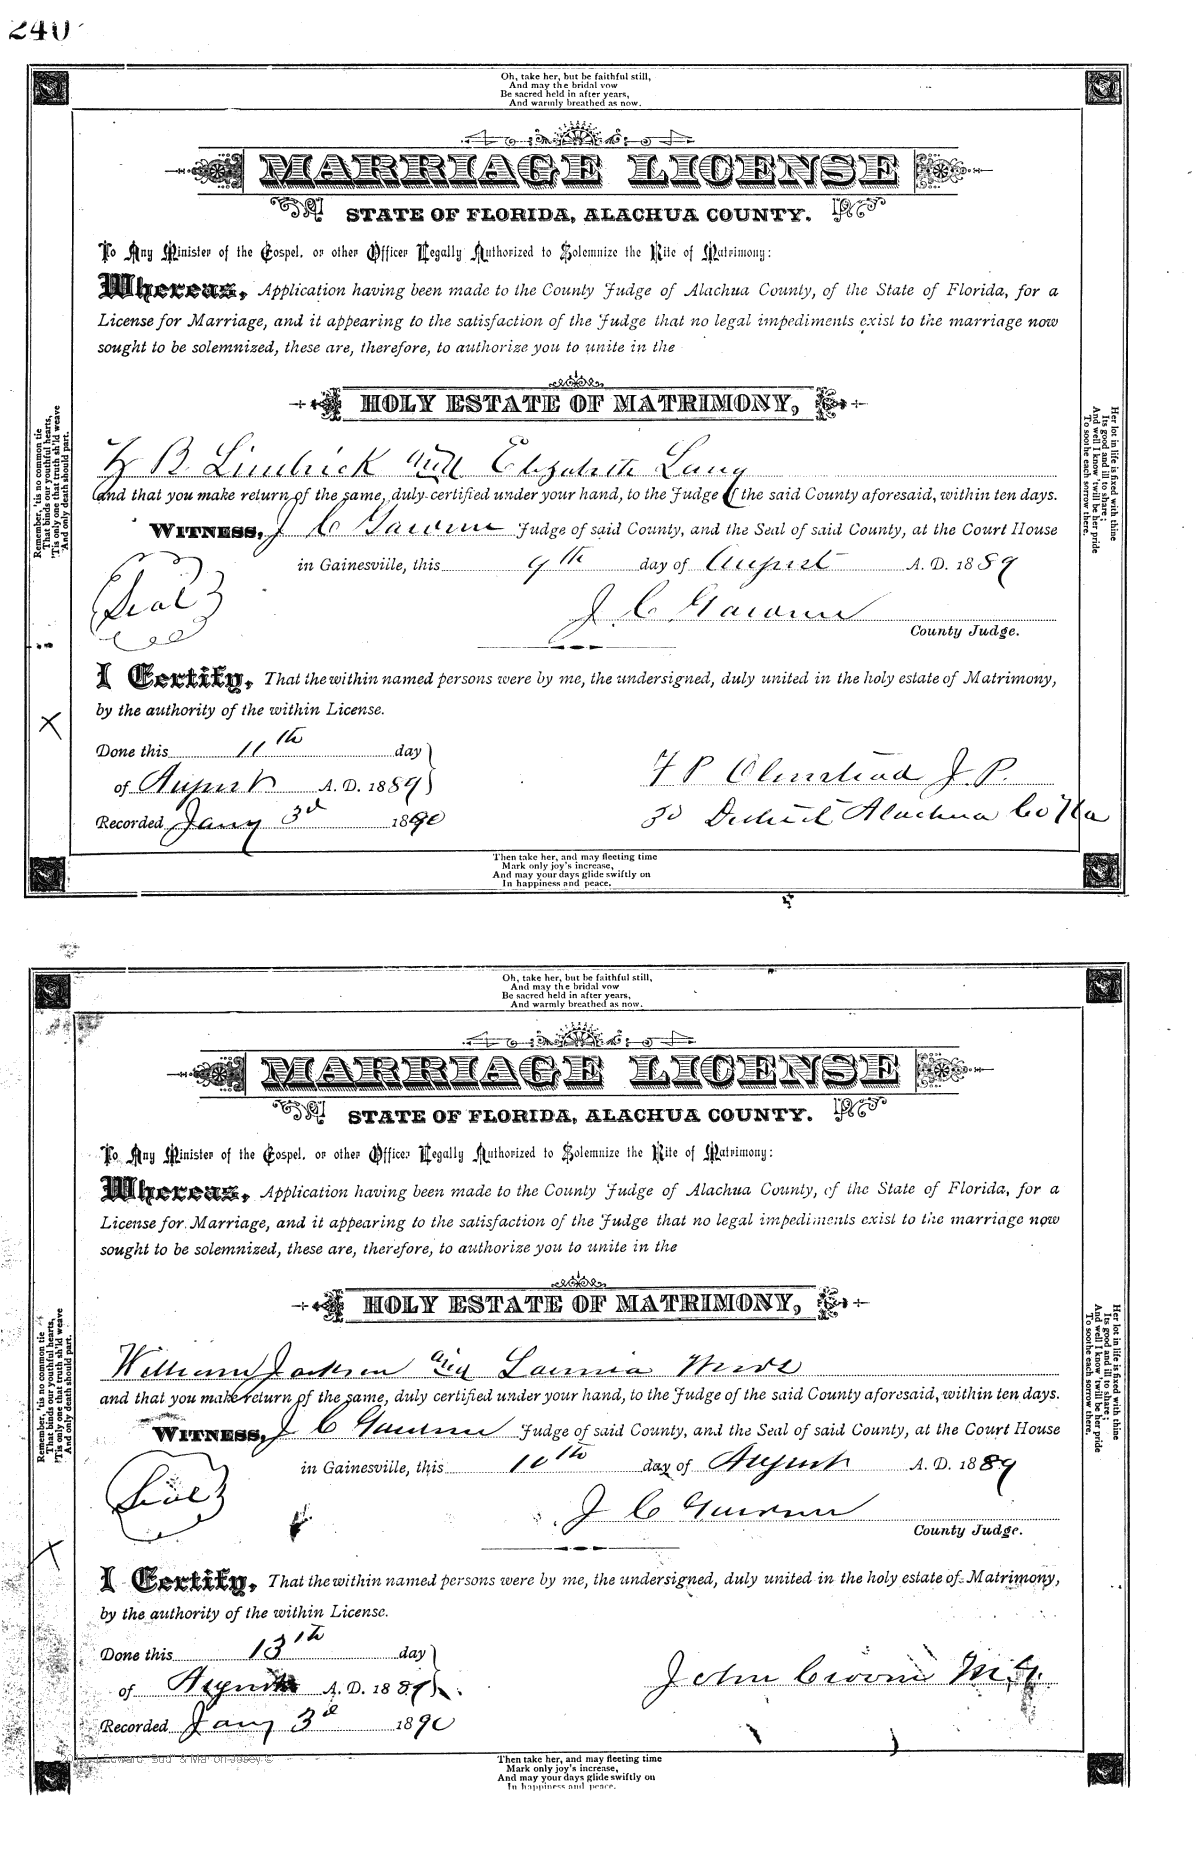 240
Oh, take her, but be faithful still,
And may the bridal vow
Be sacred held in after years,
And warmly breathed as now.
MARRIAGE LICENSE
STATE OF FLORIDA, ALACHUA COUNTY.
To Any Minister of the Gospel, or other Officer Legally Authorized to Solemnize the Rite of Matrimony:
Whereas, Application having been made to the County Judge of Alachua County, of the State of Florida, for a
License for Marriage, and it appearing to the satisfaction of the Judge that no legal impediments exist to the marriage now
sought to be solemnized, these are, therefore, to authorize you to unite in the
HOLY ESTATE OF MATRIMONY,
B and Elizabeth Lang
and that you make return of the same, duly certified under your hand, to the Judge of the said County aforesaid, within ten days.
WITNESS, J C Judge of said County, and the Seal of said County, at the Court House
in Gainesville, this 9th day of August A. D. 1889
Seal
J C
County Judge.
I Certify, That the within named persons were by me, the undersigned, duly united in the holy estate of Matrimony,
by the authority of the within License.
Done this 11th day
of August A. D. 1889
F P Olmstead J. P.
Recorded Jany 3d 1890
3d District Alachua Co Fla
Then take her, and may fleeting time
Mark only joy's increase,
And may your days glide swiftly on
In happiness and peace.
Remember, 'tis no common tie
That binds our youthful hearts,
'Tis only one that truth sh'ld weave
And only death should part.
Her lot in life is fixed with thine
Its good and ill to share;
And well I know 'twill be her pride
To soothe each sorrow there.
Oh, take her, but be faithful still,
And may the bridal vow
Be sacred held in after years,
And warmly breathed as now.
MARRIAGE LICENSE
STATE OF FLORIDA, ALACHUA COUNTY.
To Any Minister of the Gospel, or other Officer Legally Authorized to Solemnize the Rite of Matrimony:
Whereas, Application having been made to the County Judge of Alachua County, of the State of Florida, for a
License for Marriage, and it appearing to the satisfaction of the Judge that no legal impediments exist to the marriage now
sought to be solemnized, these are, therefore, to authorize you to unite in the
HOLY ESTATE OF MATRIMONY,
William Jackson and
and that you make return of the same, duly certified under your hand, to the Judge of the said County aforesaid, within ten days.
WITNESS, J C Judge of said County, and the Seal of said County, at the Court House
in Gainesville, this 10th day of August A. D. 1889
Seal
J C
County Judge.
I Certify, That the within named persons were by me, the undersigned, duly united in the holy estate of Matrimony,
by the authority of the within License.
Done this 13th day
of August A. D. 1889
John Croom M. G.
Recorded Jany 3d 1890
Then take her, and may fleeting time
Mark only joy's increase,
And may your days glide swiftly on
In happiness and peace.
Remember, 'tis no common tie
That binds our youthful hearts,
'Tis only one that truth sh'ld weave
And only death should part.
Her lot in life is fixed with thine
Its good and ill to share;
And well I know 'twill be her pride
To soothe each sorrow there.